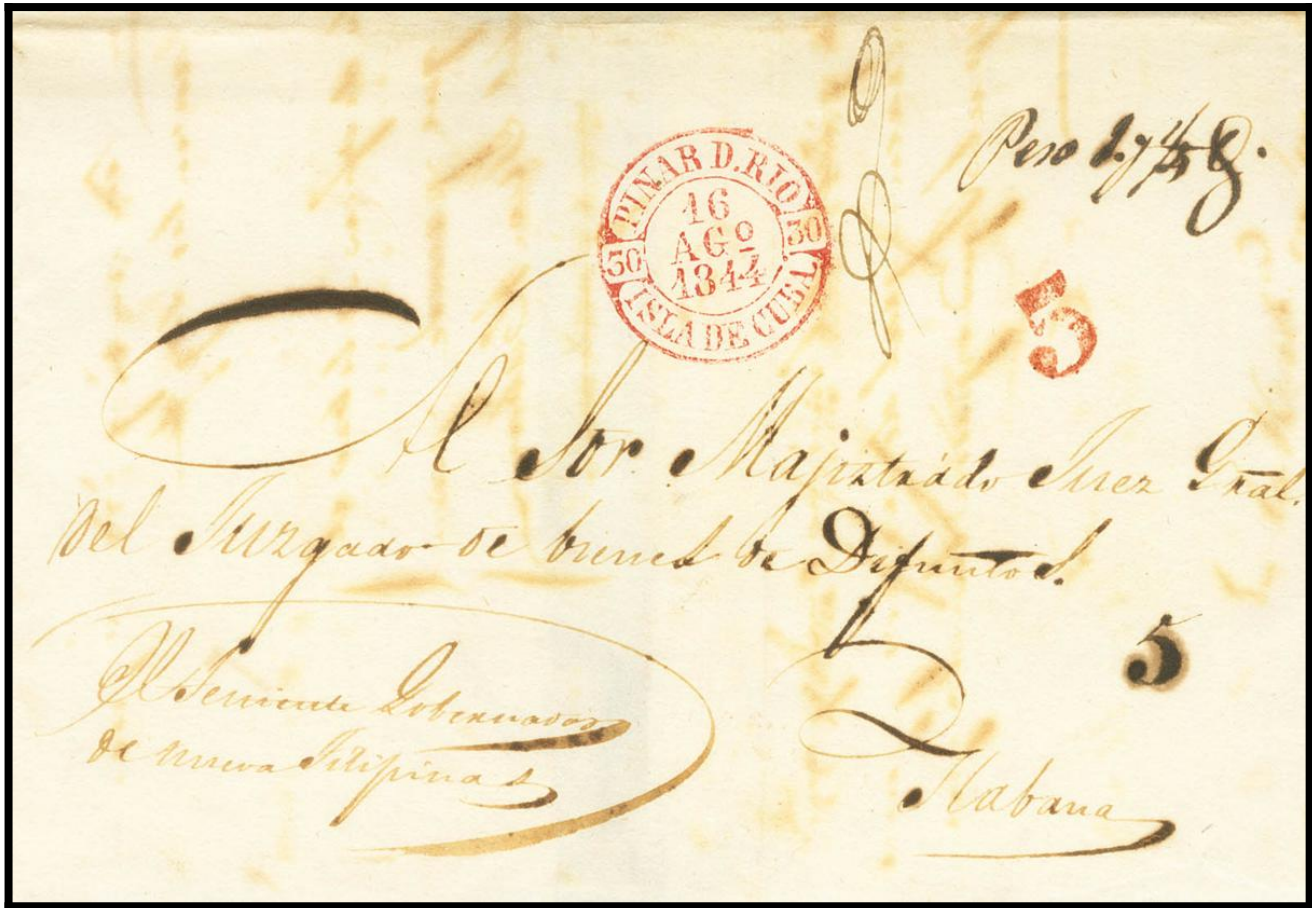 PINAR D. RIO
30 30
16
AGº
1844
ISLA DE CUBA
Peso
5
Al Sor. Majistrado Juez Gral.
del Juzgado de bienes de Difuntos.
5
El Teniente Gobernador
de nueva Filipinas
Habana